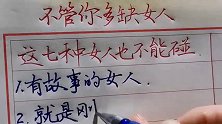 不管你多缺女人
这七种女人也不能碰
1.有故事的女人.
2.就是刚